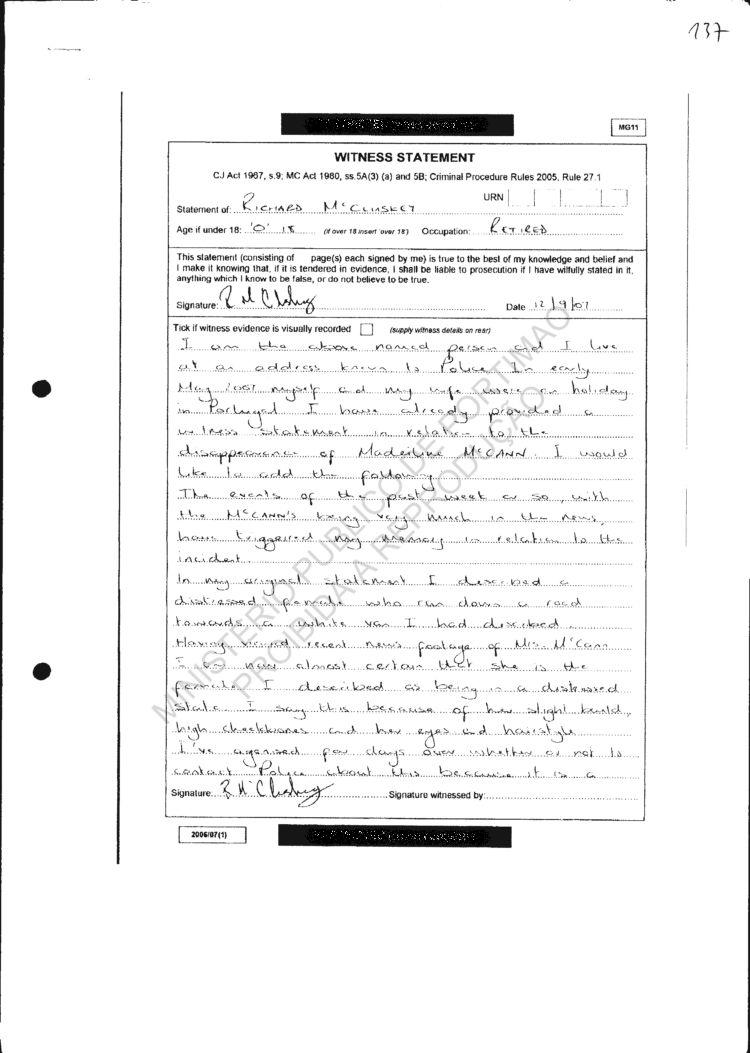 137
MG11
WITNESS STATEMENT
CJ Act 1967, s.9; MC Act 1980, ss.5A(3) (a) and 5B; Criminal Procedure Rules 2005, Rule 27.1
URN
Statement of: RICHARD McCLUSKEY
Age if under 18: 'O' 18 (if over 18 insert 'over 18') Occupation: RETIRED
This statement (consisting of page(s) each signed by me) is true to the best of my knowledge and belief and
I make it knowing that, if it is tendered in evidence, I shall be liable to prosecution if I have wilfully stated in it,
anything which I know to be false, or do not believe to be true.
Signature: R McCluskey Date 12/9/07
Tick if witness evidence is visually recorded (supply witness details on rear)
I am the above named person and I live
at an address known to Police. In early
May 2007 myself and my wife were on holiday
in Portugal. I have already provided a
witness statement in relation to the
disappearance of Madeiline McCANN. I would
like to add the following.
The events of the past week or so, with
the McCANN's being very much in the news,
have triggered my memory in relation to the
incident.
In my original statement I described a
distressed female who ran down a road
towards a white van I had described.
Having viewed recent news footage of Mrs. McCann
I am now almost certain that she is the
female I described as being in a distressed
state. I say this because of her slight build,
high cheekbones and her eyes and hairstyle.
I've agonised for days over whether or not to
contact Police about this because it is a
Signature: R McCluskey Signature witnessed by:
2006/07(1)
MINISTERIO PUBLICO DE PORTIMAO
PROIBIDA A REPRODUÇÃO